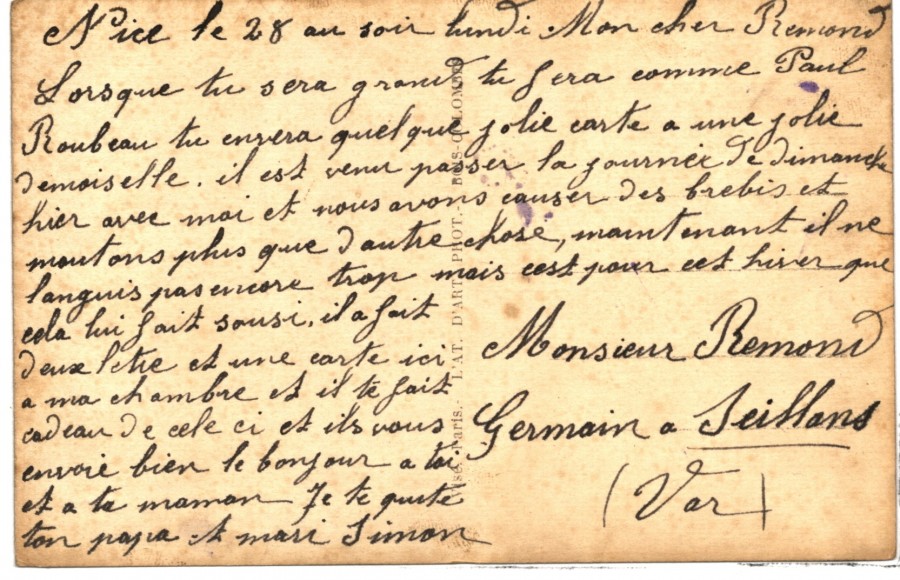 Nice le 28 au soir lundi Mon cher Remond
Lorsque tu sera grand tu fera comme Paul
Roubeau tu envera quelque jolie carte a une jolie
demoiselle. il est venu passer la journeé de dimanche
hier avec moi et nous avons causer des brebis et
moutons plus que d'autre chose, maintenant il ne
languis pas encore trop mais cest pour cet hiver que
cela lui fait sousi, il a fait
deux letre et une carte ici
a ma chambre et il te fait
cadeau de cele ci et ils vous
envoie bien le bonjour a toi
et a ta maman Je te quite
ton papa et mari Simon
Monsieur Remond
Germain a Seillans
(Var)
Visé, Paris. - L'AT. D'ART PHOT. - BOIS-COLOMBES